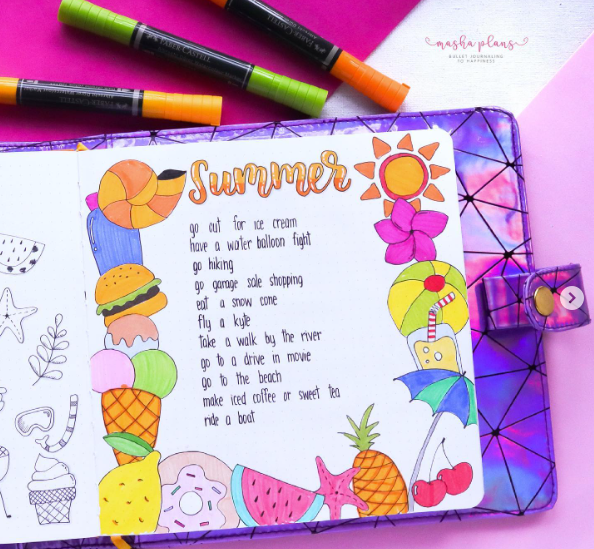 masha plans
BULLET JOURNALING
TO HAPPINESS
FABER-CASTELL
Summer
go out for ice cream
have a water balloon fight
go hiking
go garage sale shopping
eat a snow cone
fly a kyte
take a walk by the river
go to a drive in movie
go to the beach
make iced coffee or sweet tea
ride a boat